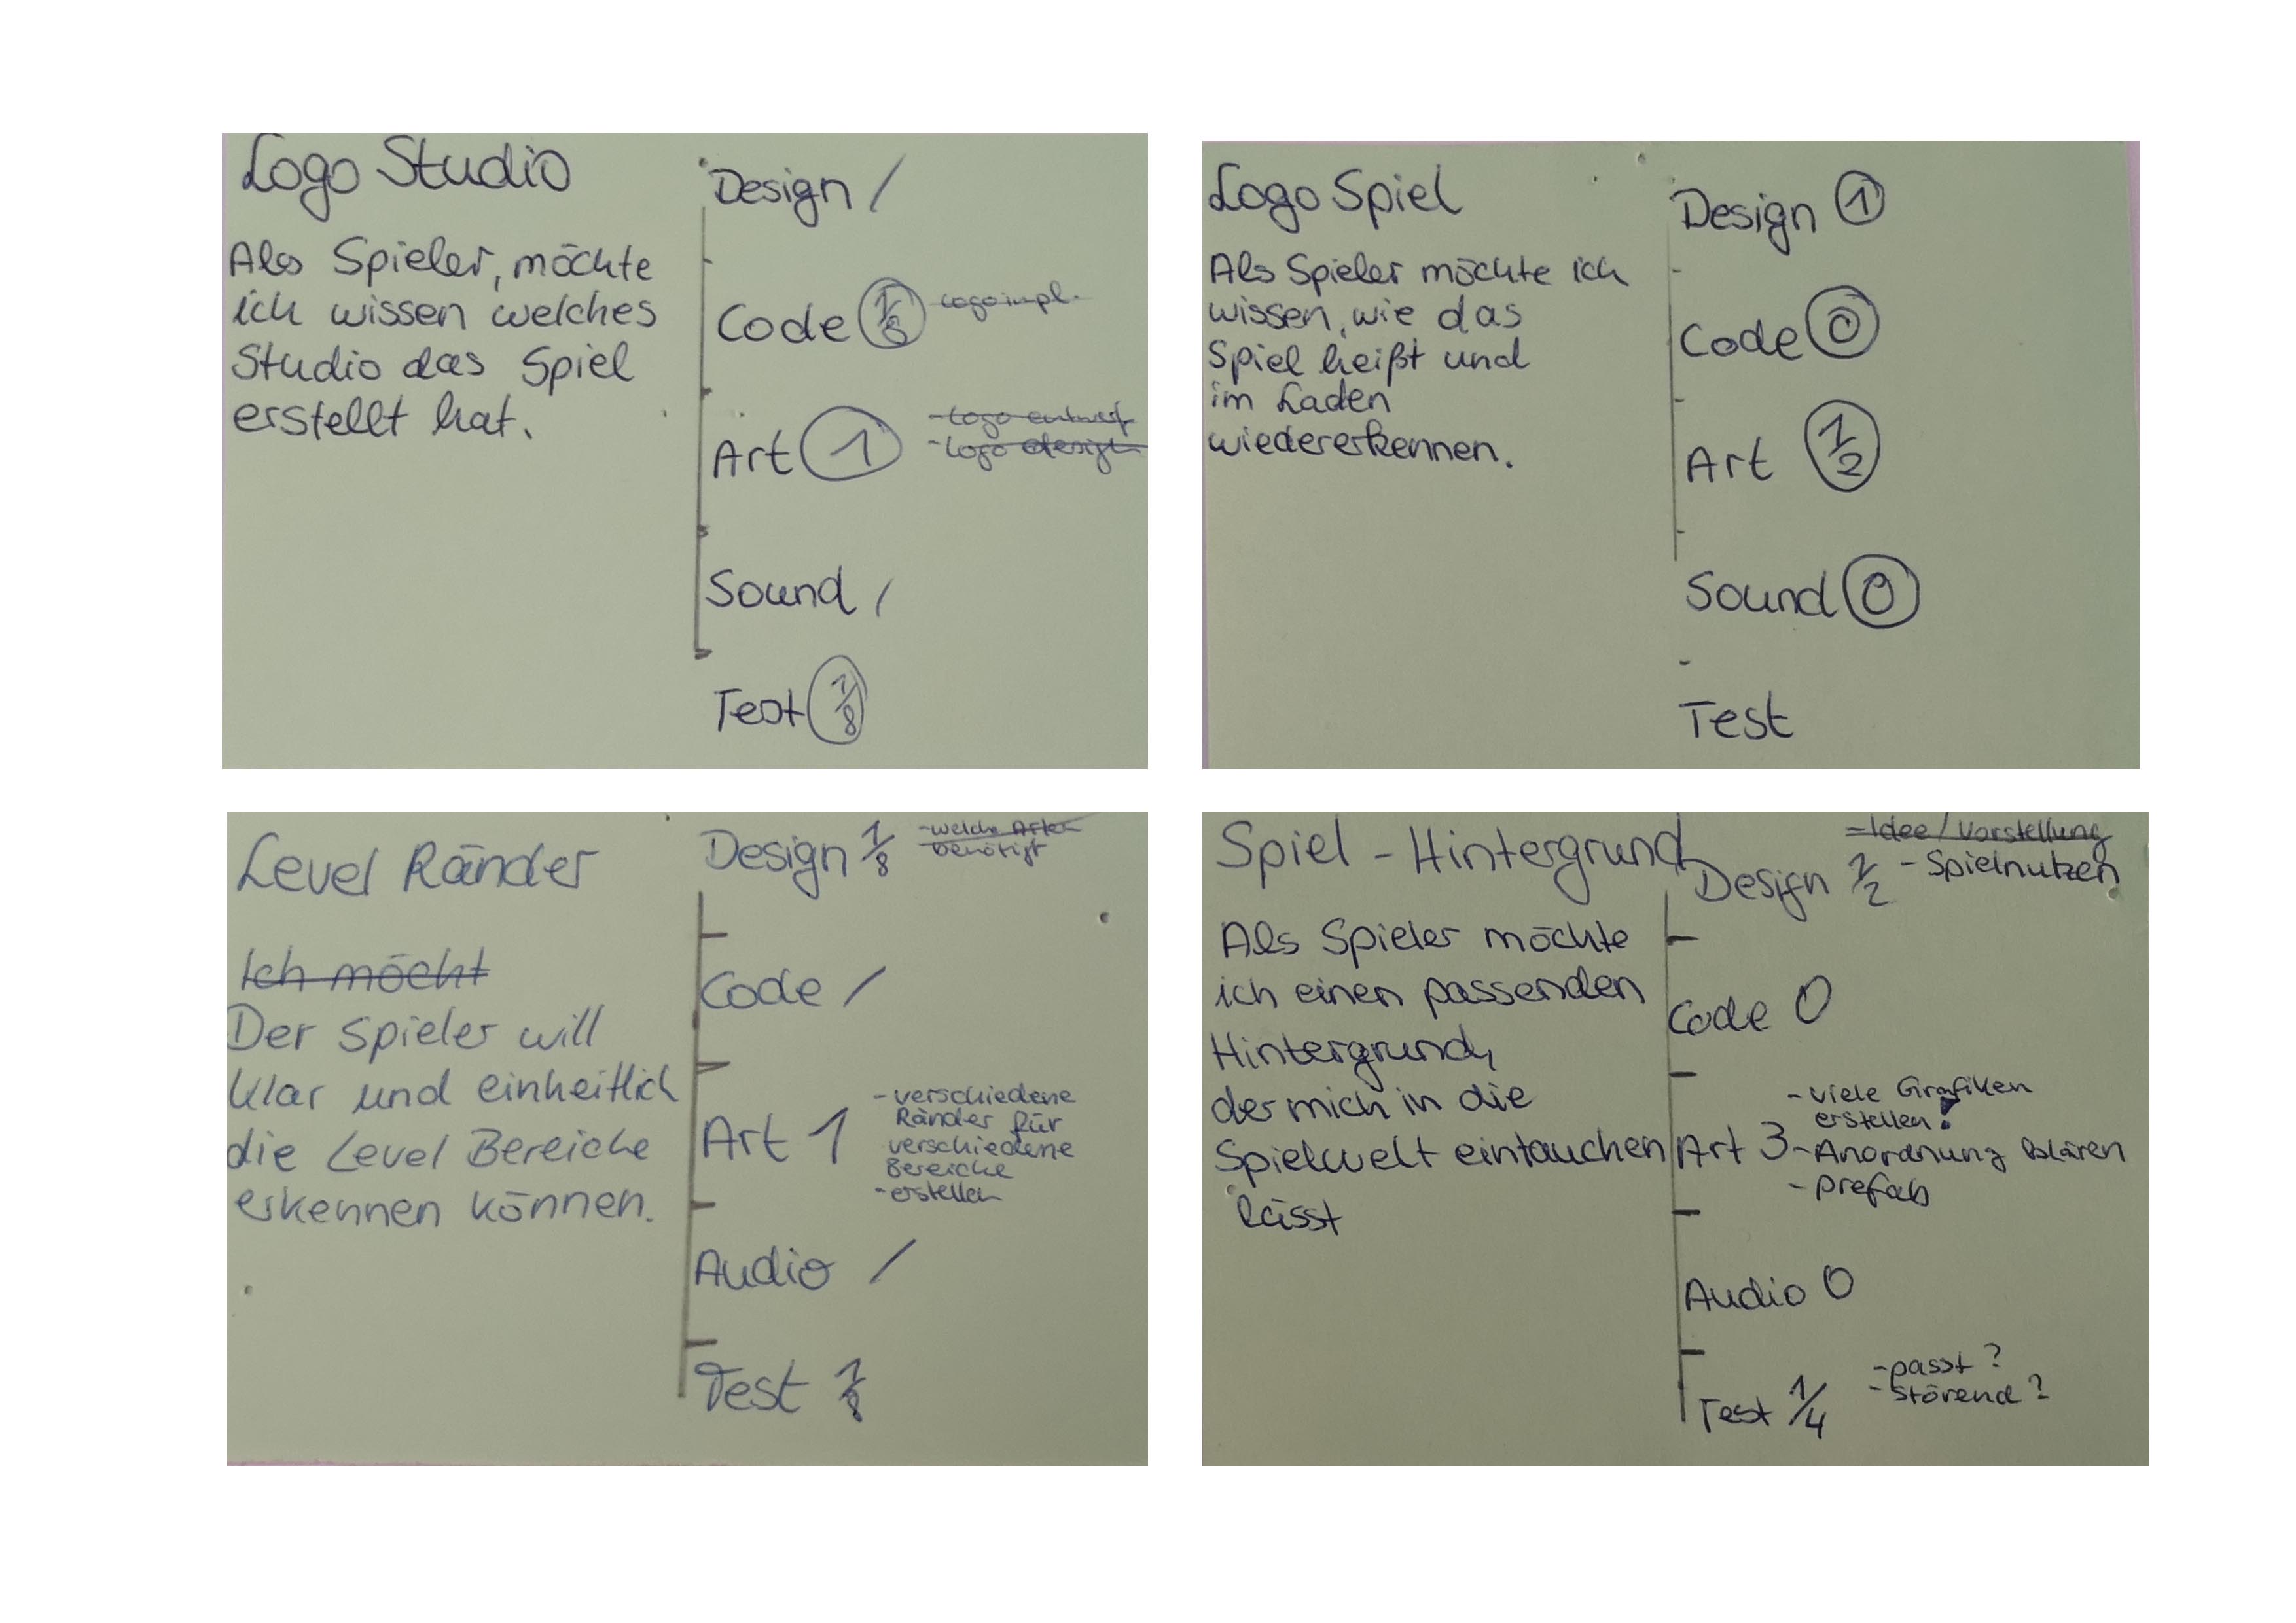 Logo Studio
Als Spieler, möchte
ich wissen welches
Studio das Spiel
erstellt hat.
Design /
Code 1/8 - Logo impl.
Art 1 - Logo entwurf
- Logo design
Sound /
Test 1/8
Logo Spiel
Als Spieler möchte ich
wissen, wie das
Spiel heißt und
im Laden
wiedererkennen.
Design 1
Code 0
Art 1/2
Sound 0
Test
Level Ränder
Ich möcht
Der Spieler will
klar und einheitlich
die Level Bereiche
erkennen können.
Design 1/8 - welche Arten
benötigt
Code /
Art 1 - verschiedene
Ränder für
verschiedene
Bereiche
- erstellen
Audio /
Test 1/8
Spiel - Hintergrund
Als Spieler möchte
ich einen passenden
Hintergrund,
der mich in die
Spielwelt eintauchen
lässt
- Idee / Vorstellung
Design 1/2 - Spielnutzen
Code 0
- viele Grafiken
erstellen!
Art 3 - Anordnung klären
- prefab
Audio 0
- passt?
Test 1/4 - störend?